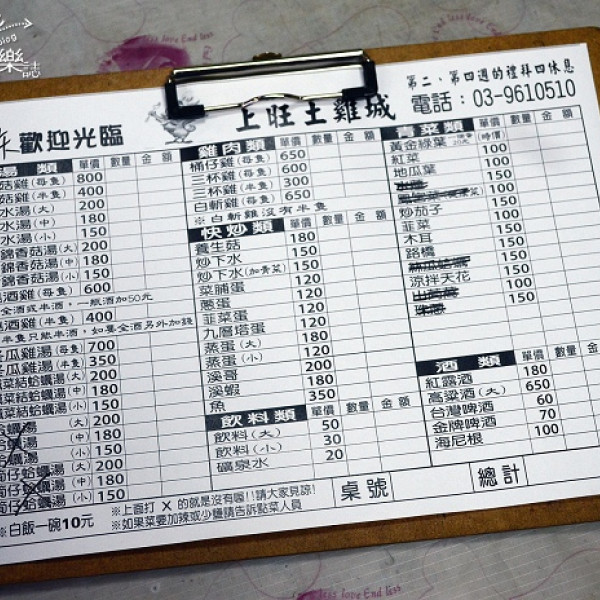 樂誌
第二、第四週的禮拜四休息
歡迎光臨
上旺土雞城
電話：03-9610510
湯類 單價 數量 金額
菇雞(每隻) 800
菇雞(半隻) 400
水湯(大) 200
水湯(中) 180
水湯(小) 150
錦香菇湯(大) 200
錦香菇湯(中) 180
錦香菇湯(小) 150
酒雞(每隻) 600
全酒或半酒,一瓶酒加50元
酒雞(半隻) 400
半隻只能半酒,如要全酒另外加錢
冬瓜雞湯(每隻) 700
冬瓜雞湯(半隻) 350
鳳菜結蛤蠣湯(大) 200
鳳菜結蛤蠣湯(中) 180
鳳菜結蛤蠣湯(小) 150
蛤蠣湯(大) 200
蛤蠣湯(中) 180
蛤蠣湯(小) 150
蛤蠣湯(大) 200
蛤蠣湯(中) 180
蛤蠣湯(小) 150
※白飯一碗10元
雞肉類 單價 數量 金額
桶仔雞(每隻) 650
三杯雞(每隻) 600
三杯雞(半隻) 300
白斬雞(每隻) 650
※白斬雞沒有半隻
快炒類 單價 數量 金額
養生菇 180
炒下水 150
炒下水(加青菜) 180
菜脯蛋 120
蔥蛋 120
韭菜蛋 120
九層塔蛋 120
蒸蛋(大) 180
蒸蛋(小) 120
溪哥 200
溪蝦 180
魚 350
飲料類 單價 數量 金額
飲料(大) 50
飲料(小) 30
礦泉水 20
青菜類 單價 數量 金額
黃金綠葉 (時價)
紅菜 100
地瓜葉 100
150
100
炒茄子 150
韭菜 100
木耳 150
路橋 150
150
涼拌天花 150
100
150
酒類 單價 數量 金額
紅露酒 180
高粱酒(大) 650
台灣啤酒 60
金牌啤酒 70
海尼根 100
※上面打X的就是沒有喔!!請大家見諒!
※如果菜要加辣或少鹽請告訴點菜人員
桌號 總計